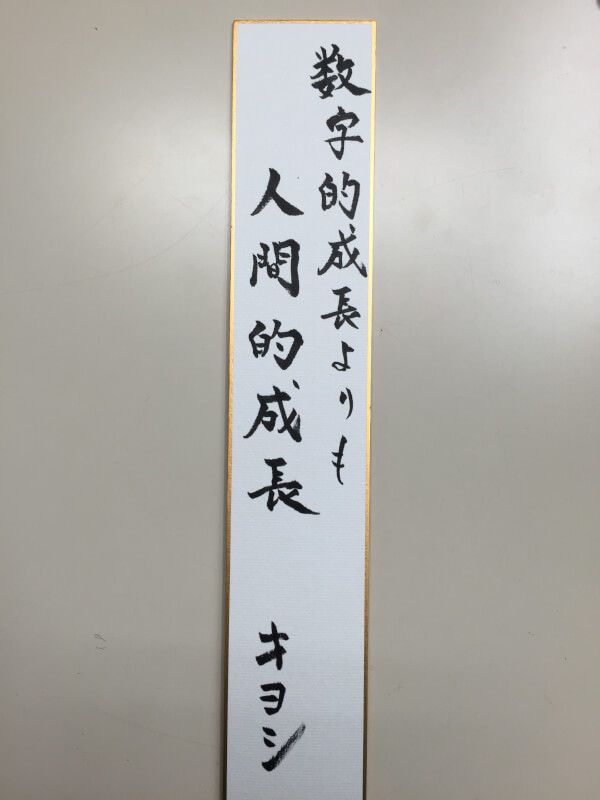 数字的成長よりも
人間的成長
キヨシ